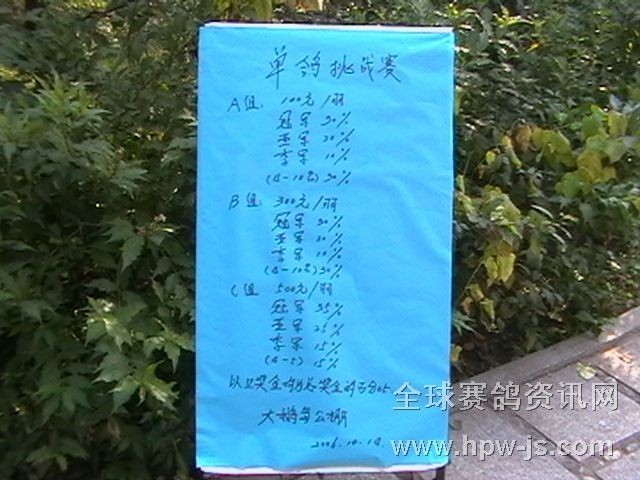 单鸽挑战赛
A组: 100元/羽
冠军 30%
亚军 20%
季军 10%
(4-10名) 30%
B组: 300元/羽
冠军 30%
亚军 20%
季军 10%
(4-10名) 30%
C组 500元/羽
冠军 35%
亚军 25%
季军 15%
(4-5) 15%
以上奖金均以总奖金的百分比
公棚
2006.10.
全球赛鸽资讯网
www.hpw-js.com